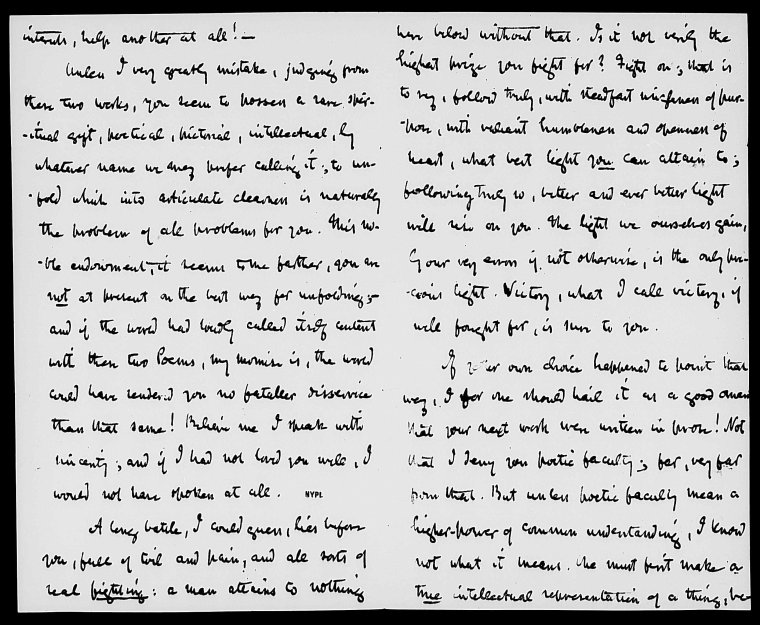 interests, help another at all! —
Unless I very greatly mistake, judging from
these two works, you seem to possess a rare spir-
-itual gift, poetical, pictorial, intellectual, by
whatever name we may prefer calling it; to un-
-fold which into articulate clearness is naturally
the problem of all problems for you. This no-
-ble endowment, it seems to me farther, you are
not at present on the best way for unfolding;—
and if the world had loudly called itself content
with these two Poems, my surmise is, the world
could have rendered you no fataller disservice
than that same! Believe me I speak with
sincerity; and if I had not loved you well, I
would not have spoken at all. NYPL
A long battle, I could guess, lies before
you, full of toil and pain, and all sorts of
real fighting: a man attains to nothing
here below without that. Is it not verily the
highest prize you fight for? Fight on; that is
to say, follow truly, with steadfast singleness of pur-
-pose, with valiant humbleness and openness of
heart, what best light you can attain to;
following truly so, better and ever better light
will rise on you. The light we ourselves gain,
by our very errors if not otherwise, is the only pre-
-cious light. Victory, what I call victory, if
well fought for, is sure to you.
If your own choice happened to point that
way, I for one should hail it as a good omen
that your next work were written in prose! Not
that I deny you poetic faculty; far, very far
from that. But unless poetic faculty mean a
higher-power of common understanding, I know
not what it means. One must first make a
true intellectual representation of a thing, be-